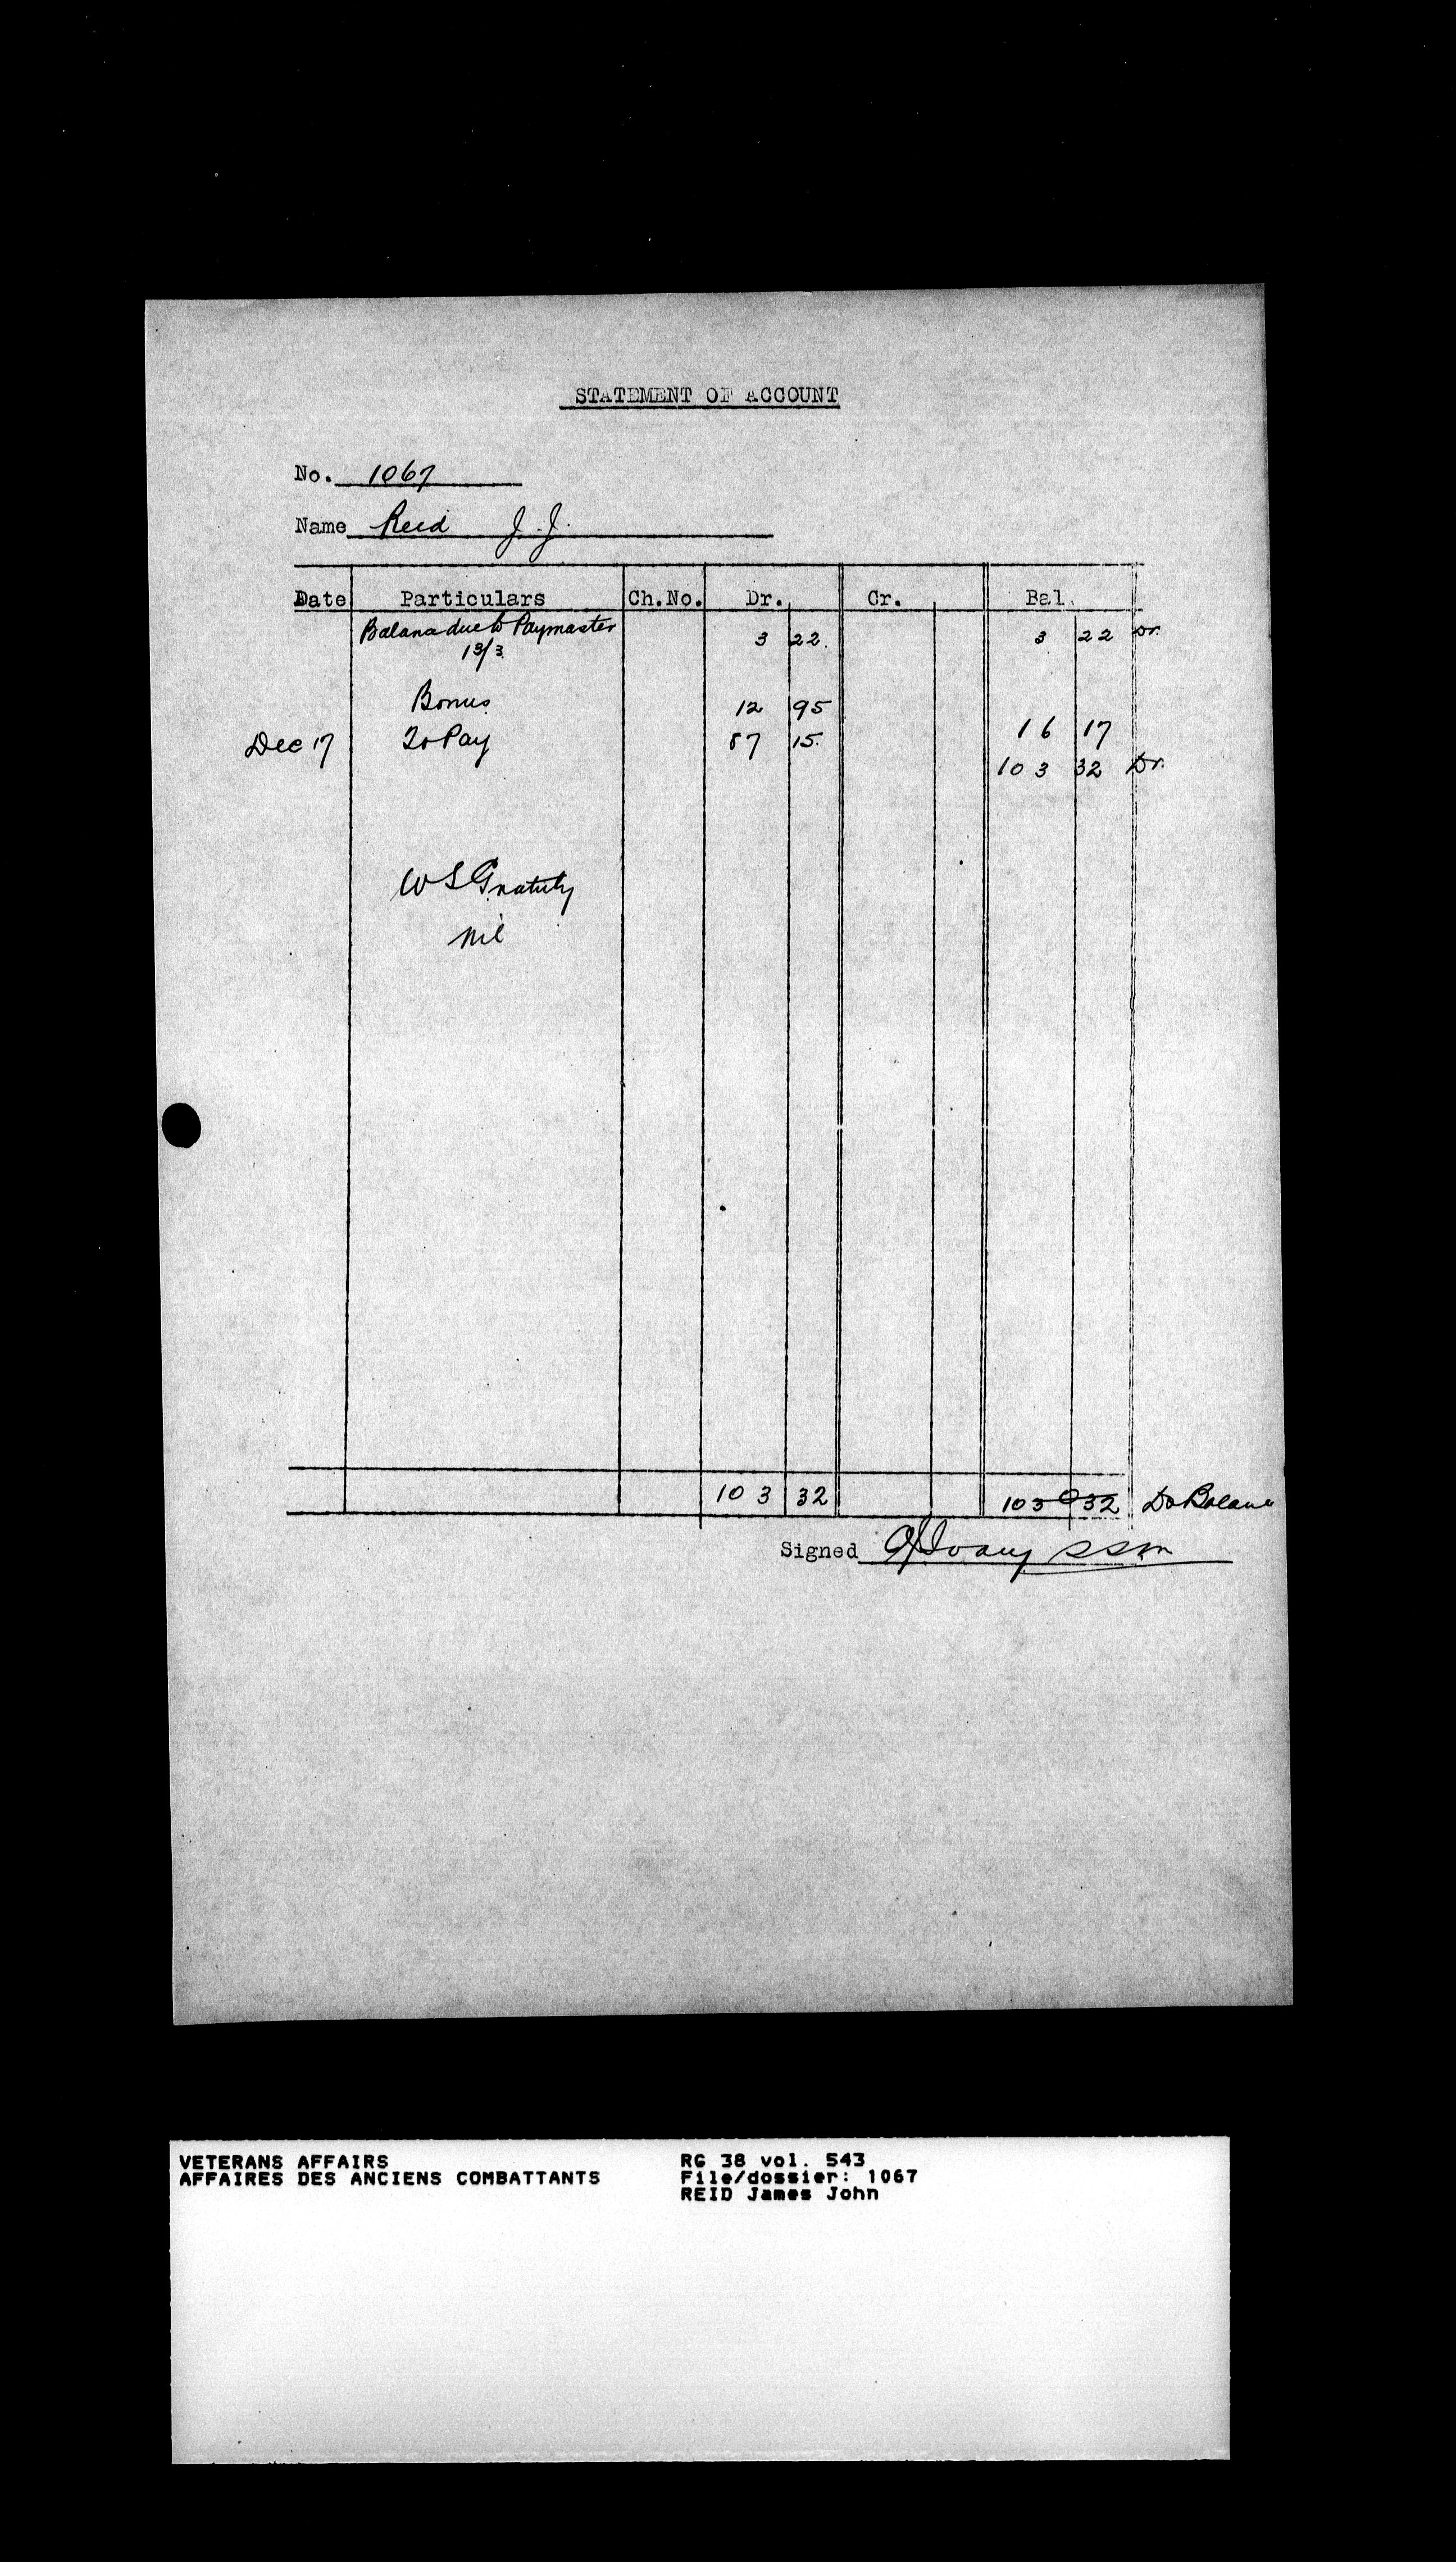 STATEMENT OF ACCOUNT
No. 1067
Name Reid J. J.
Date Particulars Ch.No. Dr. Cr. Bal.
Balance due to Paymaster 3 22 3 22 Dr.
13/3
Bonus 12 95 16 17
Dec 17 To Pay 87 15 103 32 Dr.
W S Gratuity
nil
103 32 103 32 Dr Balance
Signed SSM
VETERANS AFFAIRS RG 38 vol. 543
AFFAIRES DES ANCIENS COMBATTANTS File/dossier: 1067
REID James John